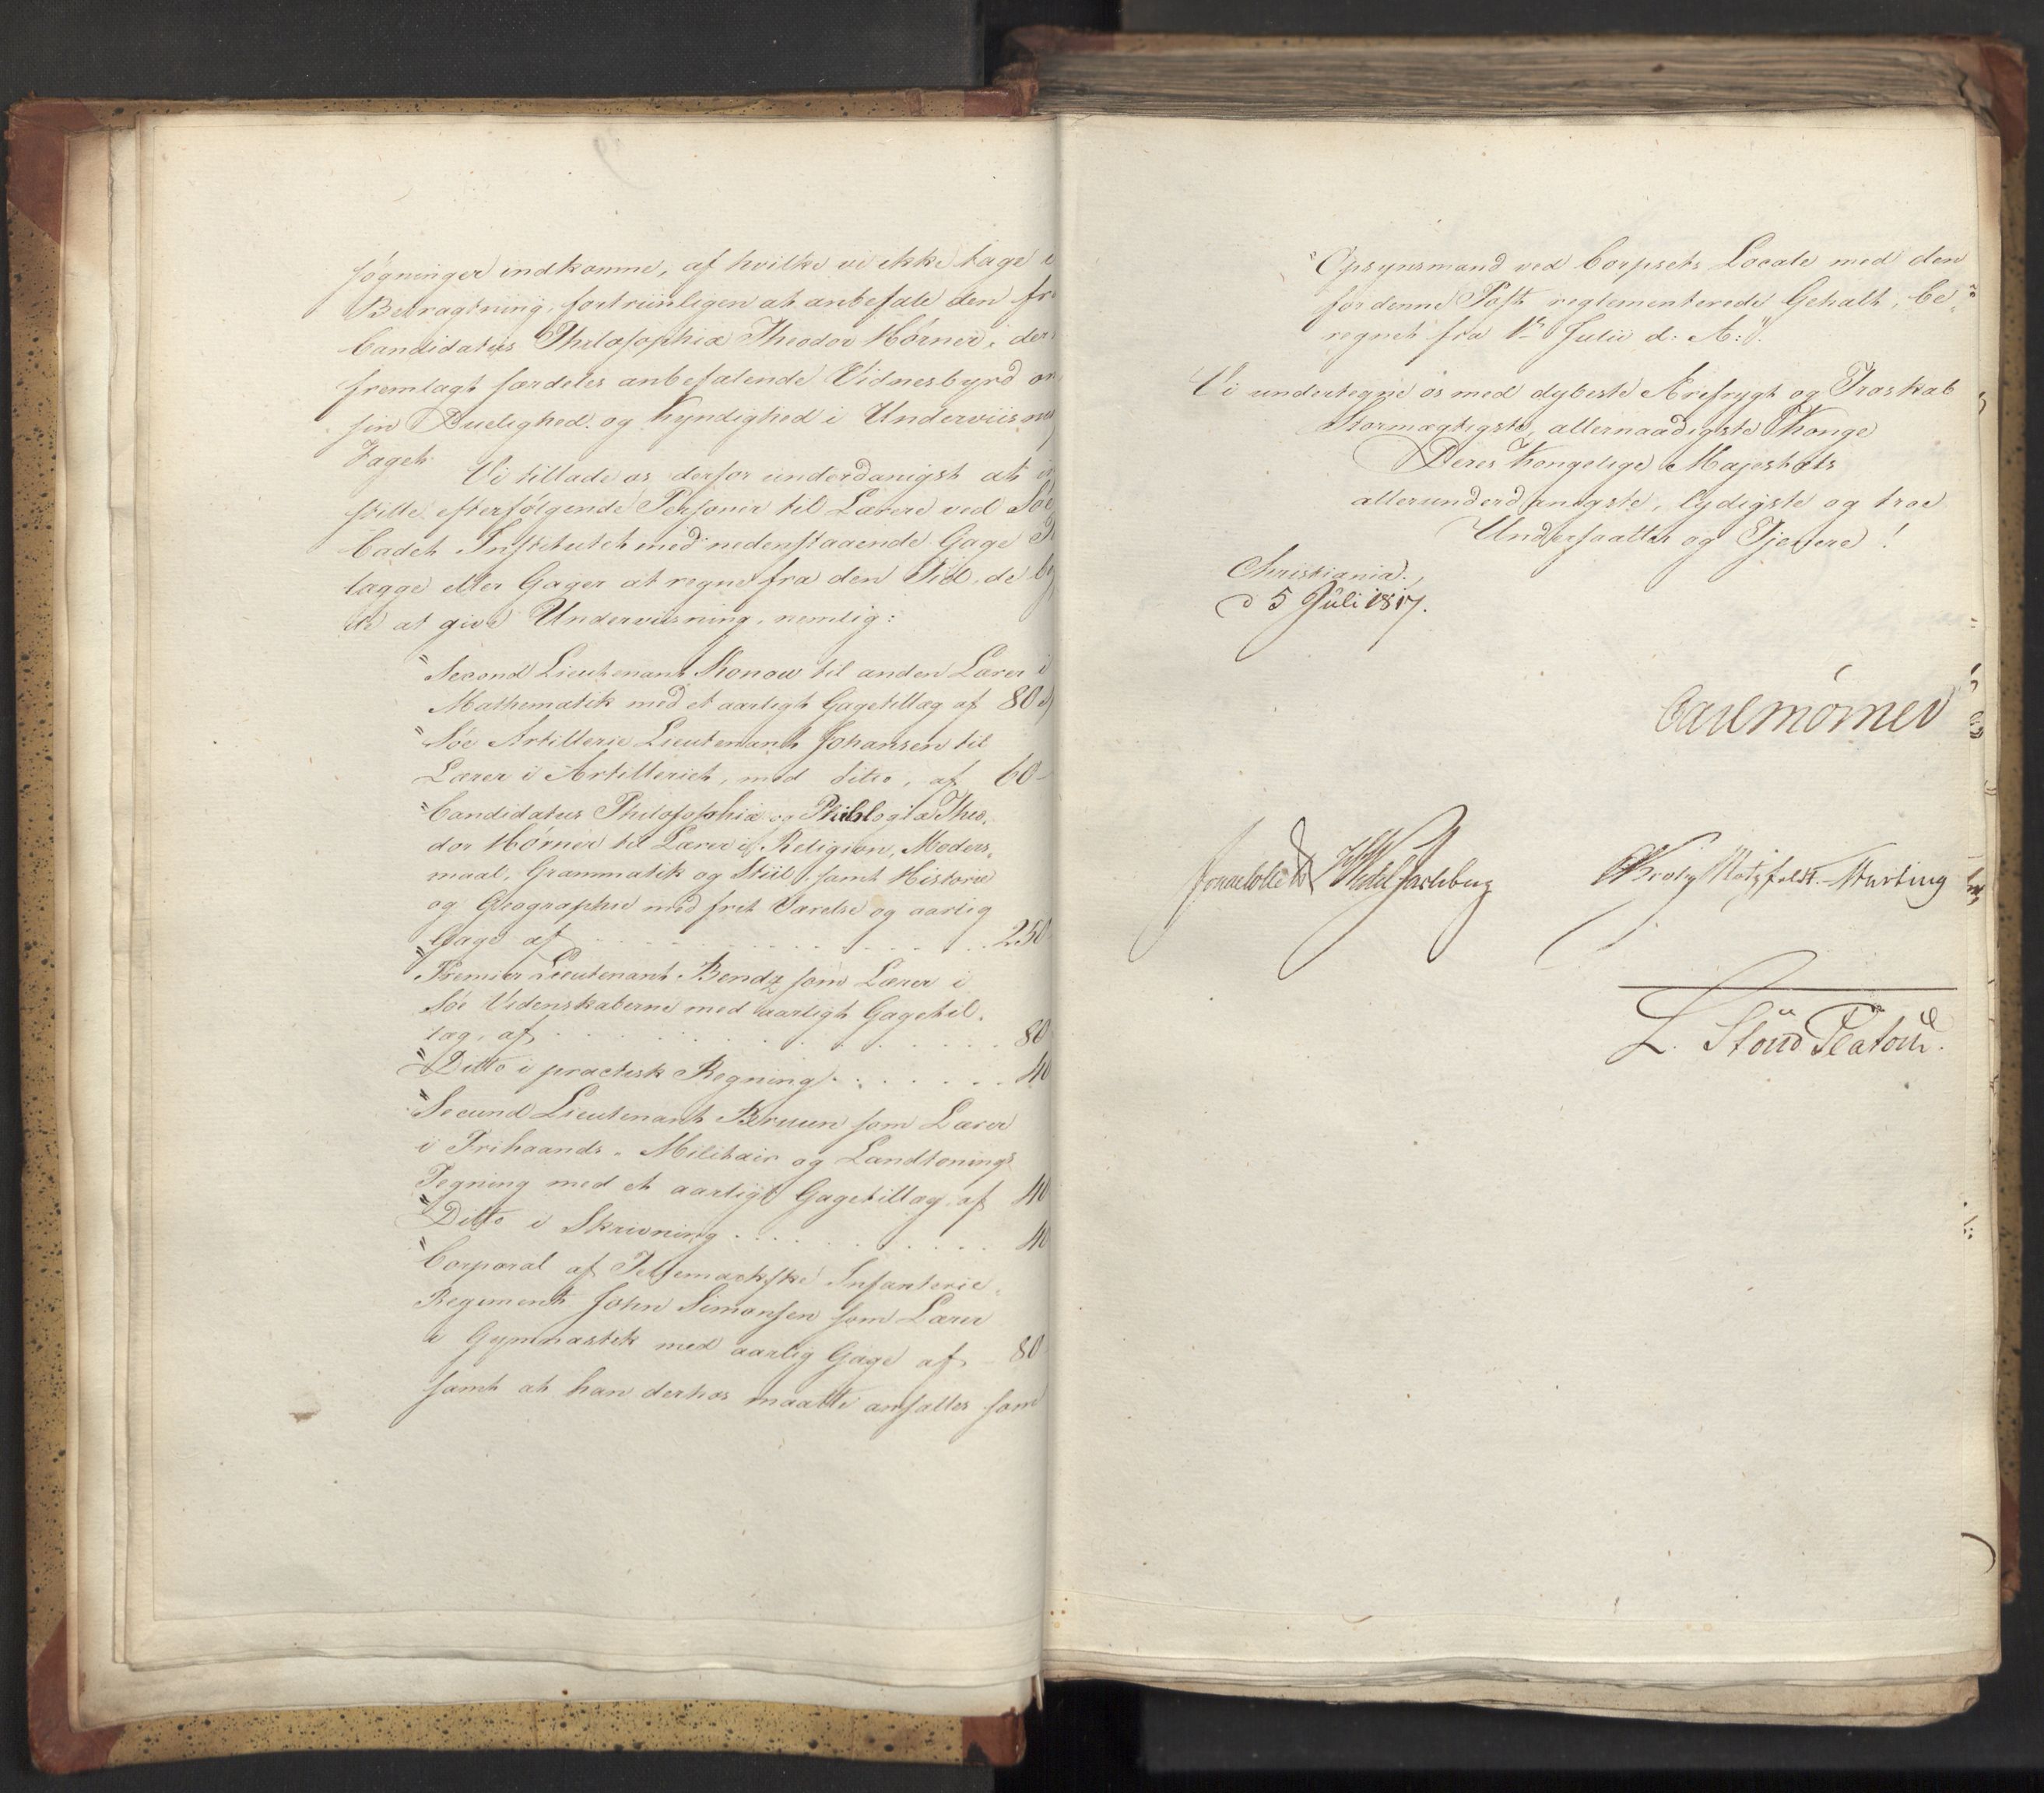 søgninger indkomne, af hvilke vi ikke tage i
Betragtning, fortrinligen at anbefale den fra
Candidatus Philosophiæ Theodor Hörner, der
fremlagt særdeles anbefalende Vidnesbyrd om
sin Duelighed og Kyndighed i Underviisnings
Faget.
Vi tillade os derfor underdanigst at ind
stille efterfølgende Personer til Lærere ved Söe
Cadet Institutet med nedenstaaende Gage Til
lægge eller Gager at regne fra den Tid, de
te at give Underviisning, nemlig:
"Second Lieutenant Konow til anden Lærer i
Mathematik med et aarligt Gagetillæg af 80
"Söe Artillerie Lieutenant Johansen til
Lærer i Artilleriet, med ditto, af 60
"Candidatus Philosophiæ og Philologiæ Theo-
dor Hörner til Lærer i Religion, Moders-
maal, Grammatik og Stiil, samt Historie
og Geographie med frit Værelse og aarlig
Gage af . . . 250
"Premier Lieutenant Bendz som Lærer i
Söe Videnskaberne med aarligt Gagetil-
læg, af . . . 80
"Ditto i practisk Regning . . . 40
"Secund Lieutenant Bruun som Lærer
i Frihaands- Militair og Landtonings
Tegning med et aarligt Gagetillæg af 40
"Ditto i Skrivning . . . 40
"Corporal af Tellemarkske Infanterie-
Regiment John Simonsen som Lærer
i Gymnastik med aarlig Gage af - 80
samt at han derhos maatte ansættes som
"Opsynsmand ved Corpsets Locale med den
for denne Post reglementerede Gehalt, be-
regnet fra 1te Julii d: A:".
Vi undertegne os med dybeste Ærefrygt og Troskab
Stormægtigste, allernaadigste Konge
Deres Kongelige Majestæts
allerunderdanigste, lydigste og troe
Undersaatter og Tjenere!
Christiania,
d 5 Juli 1817.
Carl Mörner
Jonas Collett Wedel Jarlsberg Krog Motzfeldt.
L. Stoud Platou.